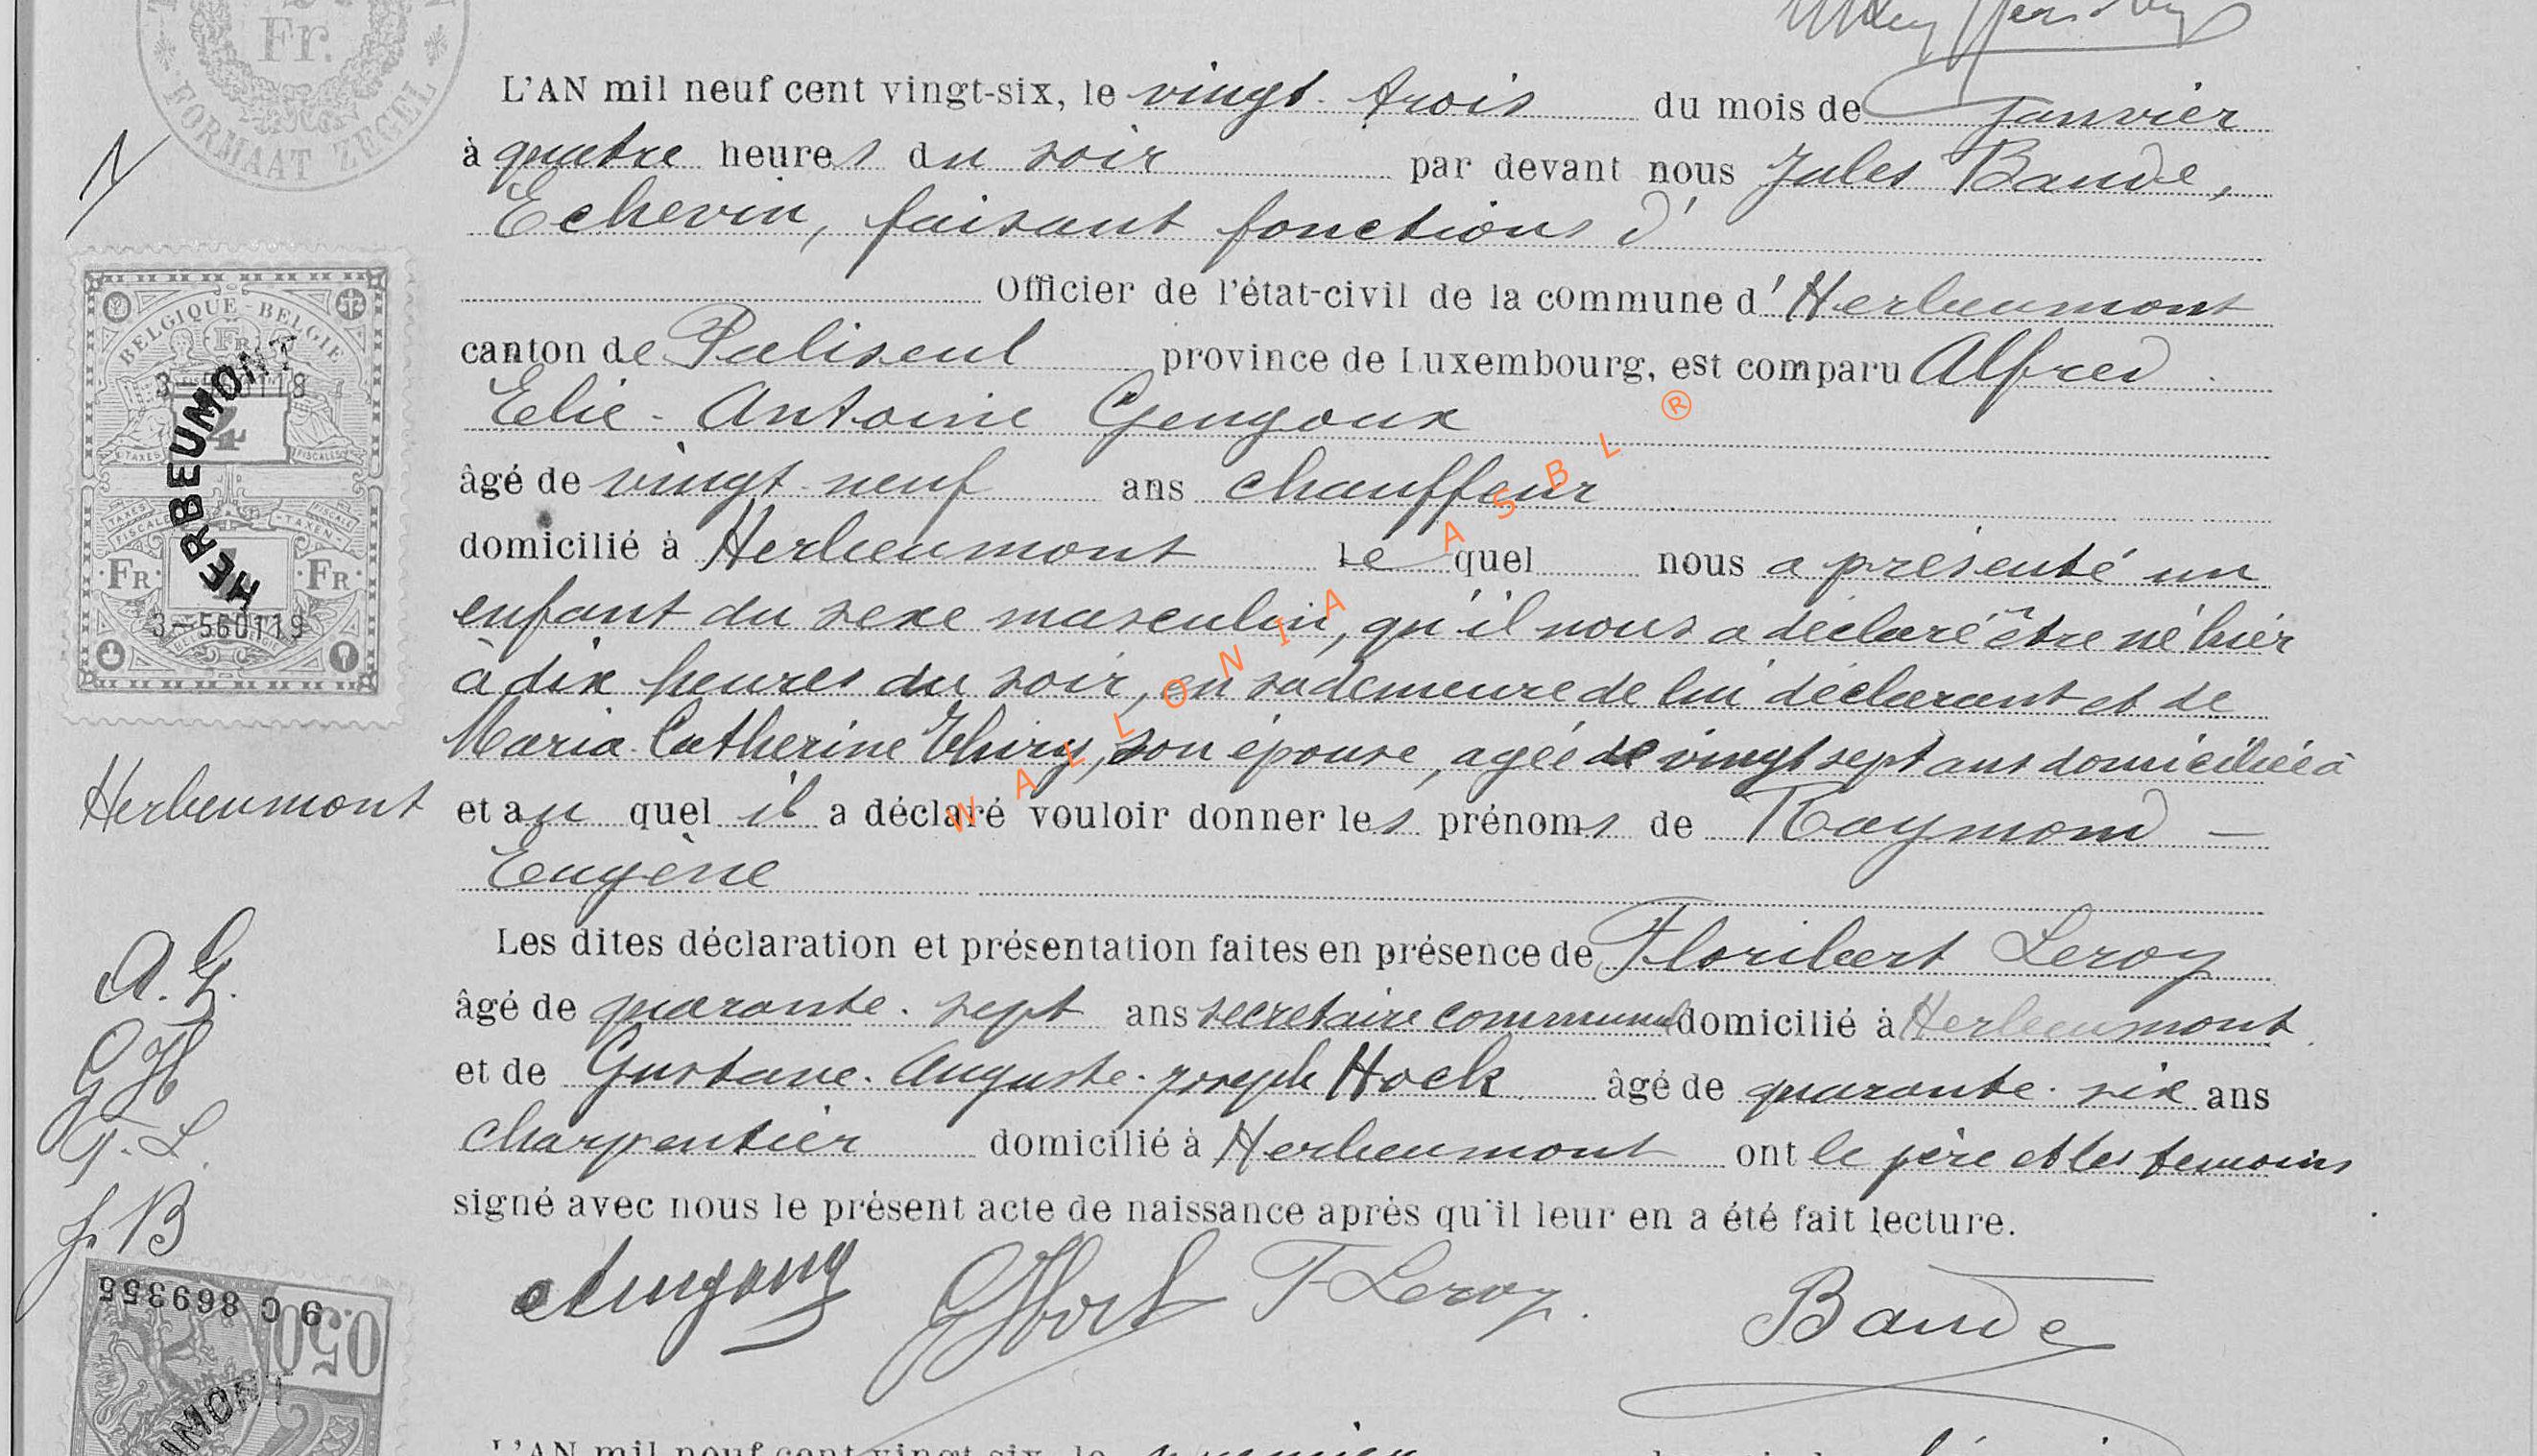 Fr.
FORMAAT ZEGEL
L'AN mil neuf cent vingt-six, le vingt-trois du mois de Janvier
à quatre heures du soir par devant nous Jules Baude,
Echevin, faisant fonctions d'
Officier de l'état-civil de la commune d'Herbeumont
canton de Paliseul province de Luxembourg, est comparu Alfred
Elie-Antoine Gengoux
âgé de vingt-neuf ans chauffeur
domicilié à Herbeumont lequel nous a présenté un
enfant du sexe masculin, qu'il nous a déclaré être né hier
à dix heures du soir, en sa demeure de lui déclarant et de
Maria-Catherine Thiry, son épouse, agée de vingt sept ans domiciliée à
Herbeumont et au quel il a déclaré vouloir donner les prénoms de Raymond -
Eugène
Les dites déclaration et présentation faites en présence de Floribert Leroy
âgé de quarante-sept ans secretaire communal domicilié à Herbeumont
et de Gustave-Auguste-Joseph Hock âgé de quarante-six ans
charpentier domicilié à Herbeumont ont le père et les temoins
signé avec nous le présent acte de naissance après qu'il leur en a été fait lecture.
AGengoux GHock F Leroy. Baude
BELGIQUE-BELGIE
HERBEUMONT
TAXES FISCALES
TAXES FISCALES TAXEN
FR FR
3-560119
A.G.
G H
F.L.
J.B
9 C 869355
0.50
L'AN mil neuf cent vingt-six, le premier
WALLONIA ASBL ®